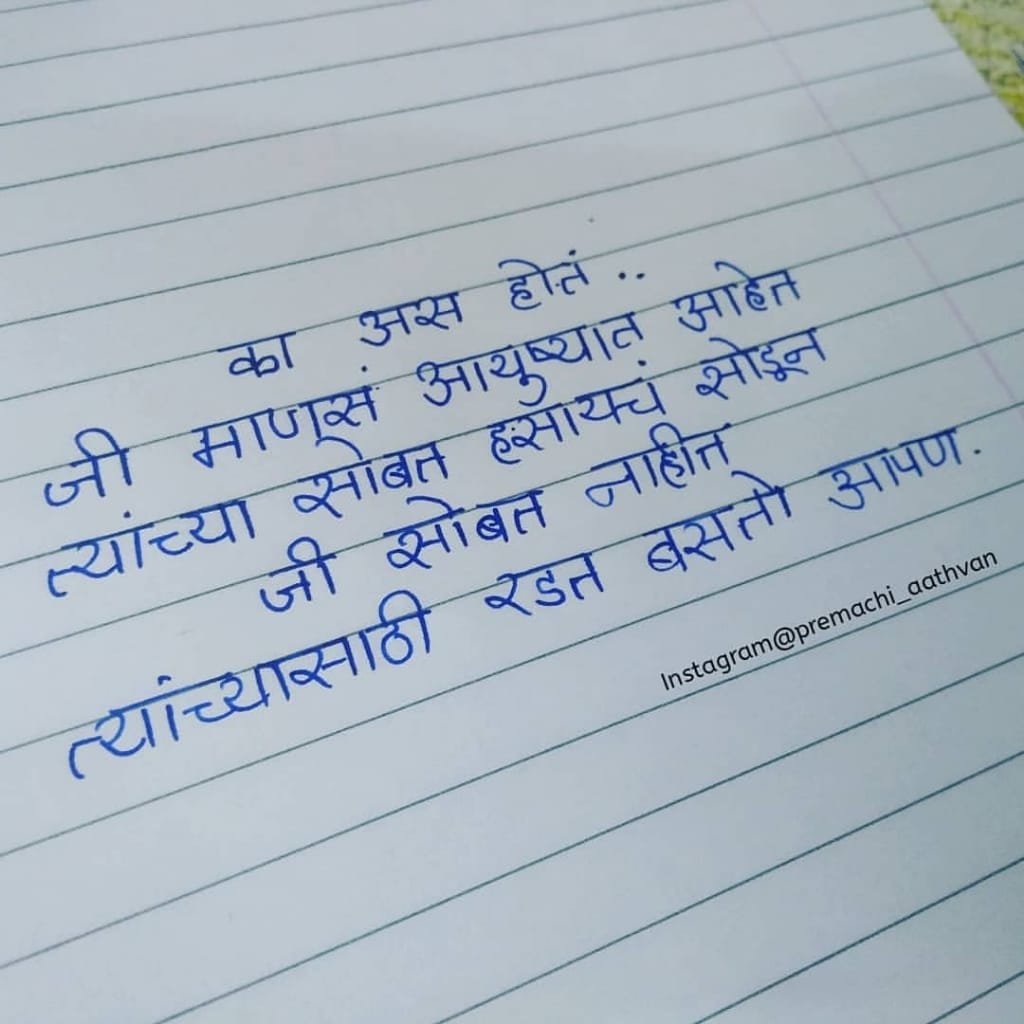 का अस होतं ..
जी माणसं आयुष्यात आहेत
त्यांच्या सोबत हसायचं सोडून
जी सोबत नाहीत
त्यांच्यासाठी रडत बसतो आपण.
Instagram@premachi_aathvan